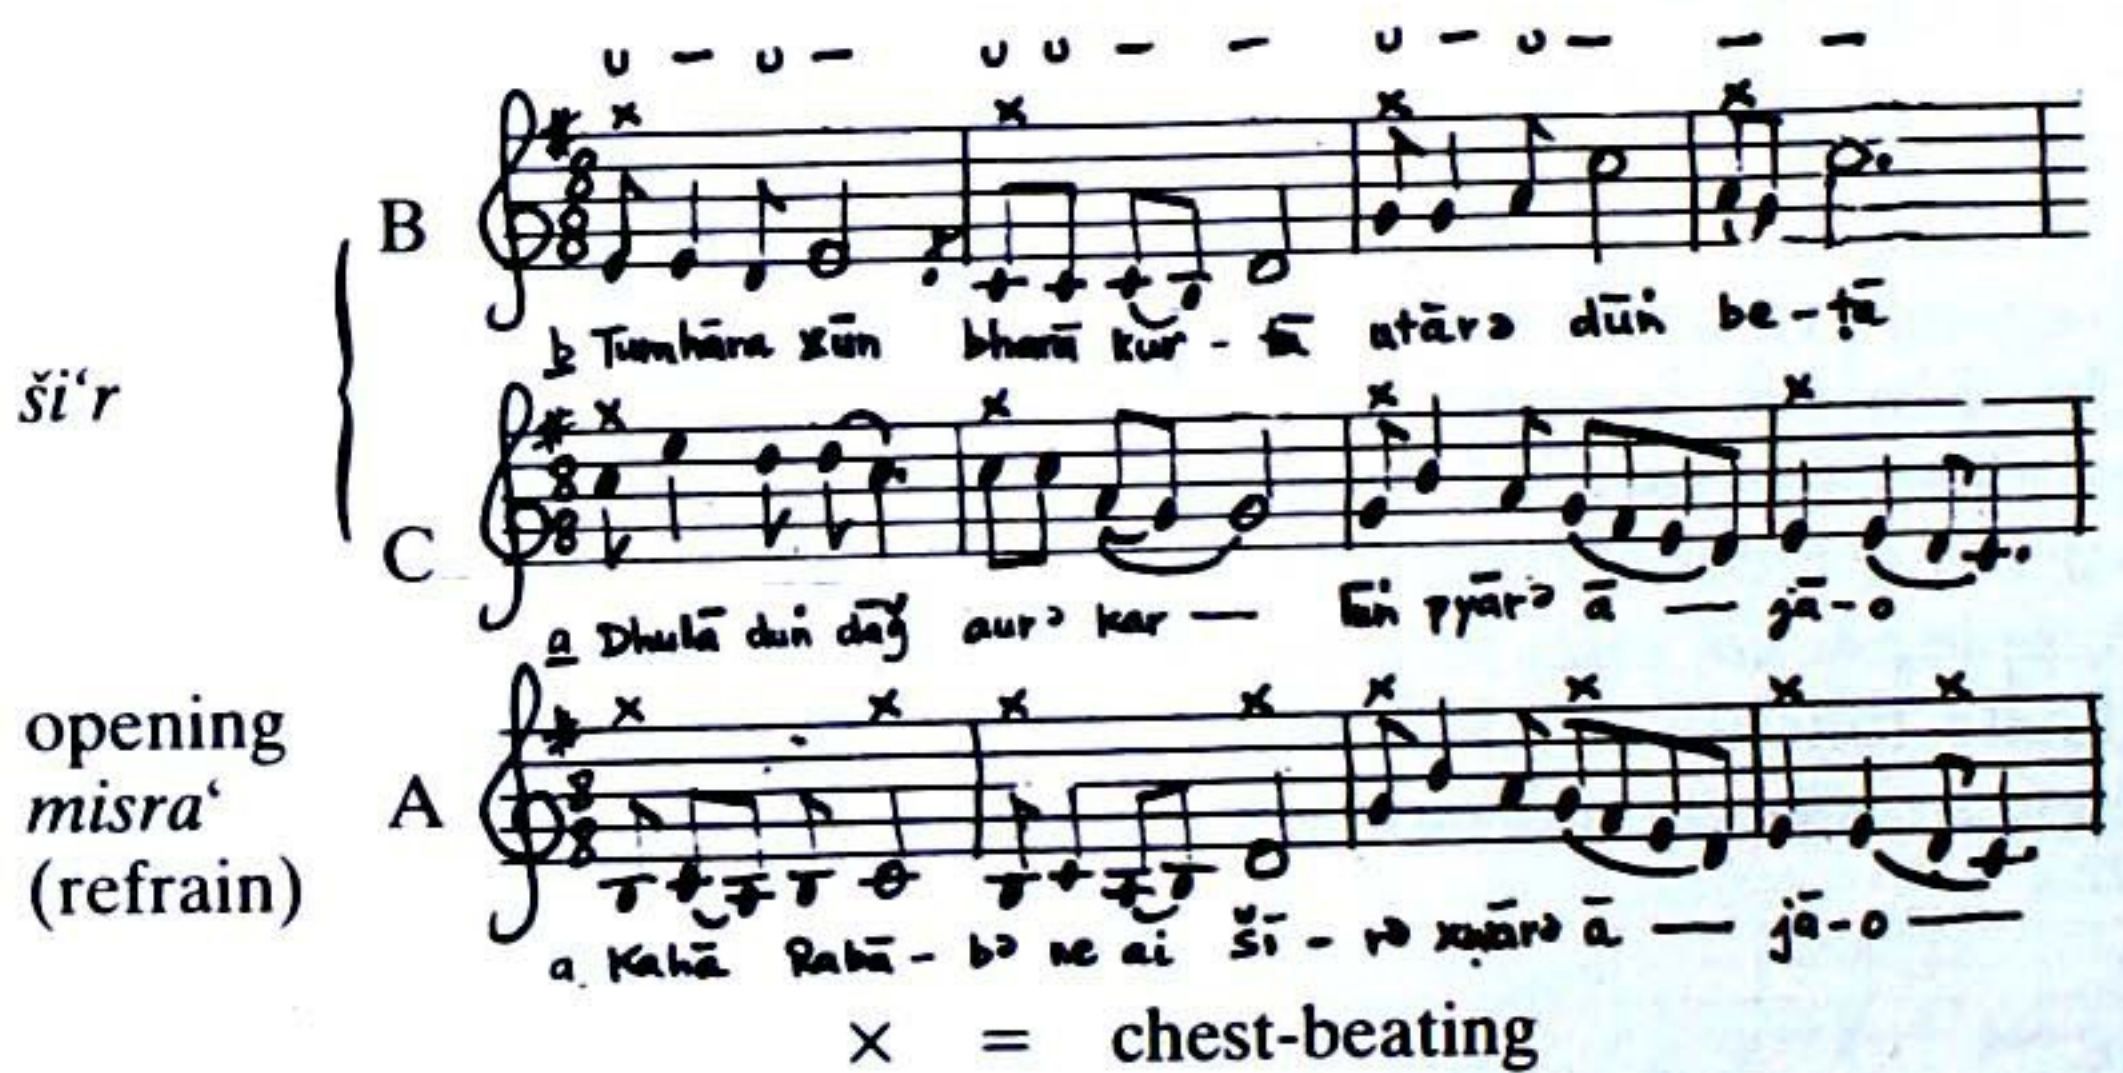 ∪ – ∪ – ∪ ∪ – – ∪ – ∪ – – –
× × × ×
B
8 8
b Tumhāra xūn bharā kur - tā utārə dūṅ be - ṭā
ši‘r
× × × ×
C
8 8
a Dhulā duṅ dāġ aurə kar — pyārə ā — jā - o
opening
misra‘
(refrain)
× × × × × × × ×
A
8 8
a. Kahā Rabā - bə ne ai šī - rə xwārə ā — jā - o —
× = chest-beating